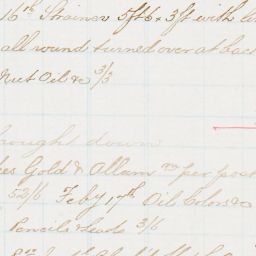 16th Strainer 5ft6 x 3ft with
all round turned over at bac
Nut Oil &c 3/3
brought down
es Gold & Allum per post
52/6 Feby 17th Oil Colors &c
Pencils & Leads 3/6